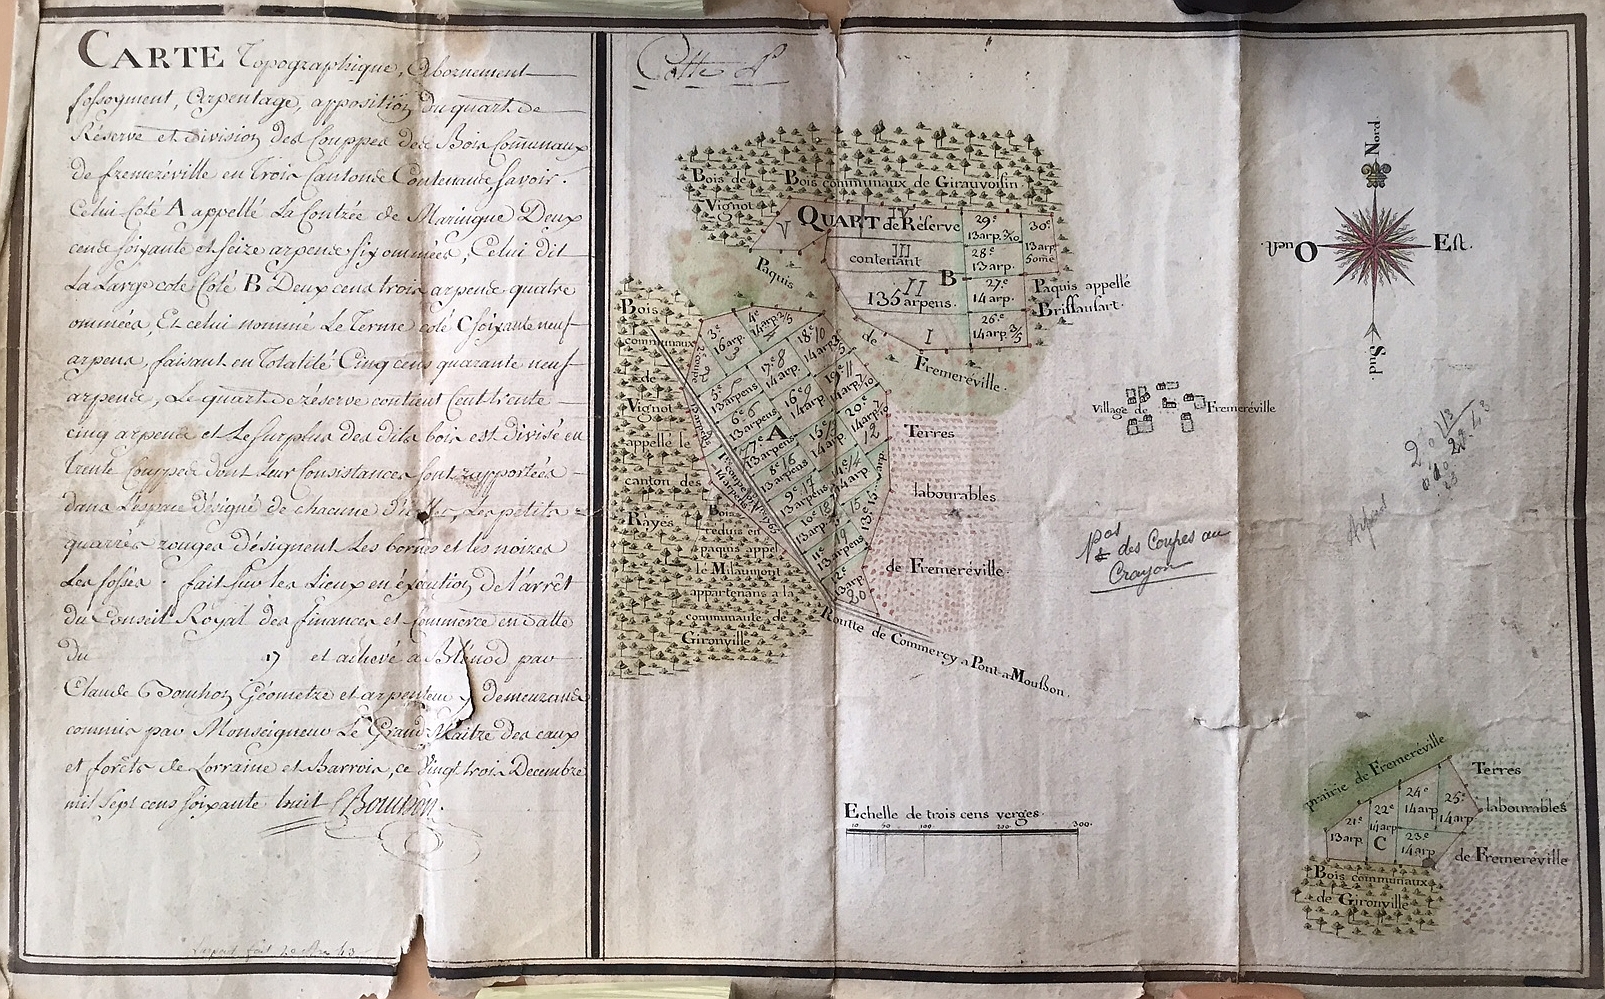 CARTE Topographique, Abornement
fossoyment, Arpentage, apposition du quart de
Réserve et division des Couppes des Bois Communaux
de fremeréville en Trois Cantons Contenans savoir.
Celui coté A appellé La Contrée de Maringue Deux
cens soixante et seize arpens six ommées, Celui dit
La Large coté Coté B Deux cens trois arpens quatre
ommées, Et celui nommé Le Terme coté C soixante neuf
arpens, faisant en Totalité Cinq cens quarante neuf
arpens, Le quart de réserve contient Cent trente
cinq arpens et Le surplus des dits bois est divisé en
trente Couppes dont Leur Consistances sont rapportées
dans L'espace désigné de chacune d'icelles, Les petits
quarrés rouges désignent Les bornes et les noires
Les fossés. fait sur les Lieux en éxécution de l'arrêt
du Conseil Royal des finances et Commerce en datte
du 17 et achevé a Blénod par
Claude Bouchon Géometre et arpenteur y demeurans
commis par Monseigneur Le Grand Maitre des eaux
et forêts de Lorraine et Barrois, ce vingt trois Decembre
mil sept cens soixante huit Bouchon.
Cotte
Bois de
Vignot
Bois communaux de Girauvoisin
QUART de Réserve
contenant
135 arpens.
V
IV
III
II
I
B
29e
13 arp.
30e
13 arp
5 omé
28e
13 arp.
27e
14 arp.
26e
14 arp. 3/5
Paquis appellé
Brissaufart.
Paquis
de
Fremeréville.
Bois
communaux
de
Vignot
appellé le
canton des
Rayes
Bois
reduis en
paquis appel
lé Milaumont
appartenans a la
communauté de
Gironville
3e
16 arp.
4e
14 arp 2/5
5e
13 arpens
6e
13 arpens
7e
13 arpens
8e
13 arpens
9e
13 arpens
10e
13 arpens
11e
13 arpens
12e
13 arp
17e
14 arp.
18e
14 arp
16e
14 arp
19e
14 arp
20e
14 arp
A
Terres
labourables
de Fremeréville.
Routte de Commercy a Pont-a-Mousson.
Village de Fremeréville
Nord.
Ouest
Est.
Sud.
Pas
des Coupes au
Crayon
Echelle de trois cens verges.
10 50 100 200 300.
prairie de Fremeréville
21e
13 arp
22e
14 arp
24e
14 arp
25e
14 arp
23e
14 arp
C
Terres
labourables
de Fremeréville
Bois communaux
de Gironville